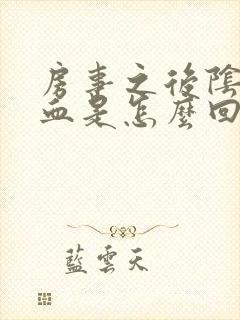 房事之後陰
血是怎麼回
藍雲天